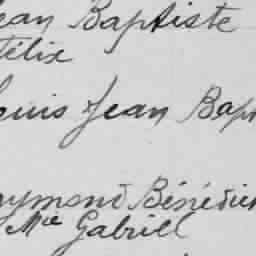 ean Baptiste
Félix
ouis Jean Bap
aymond Bénédic
Mie Gabriel